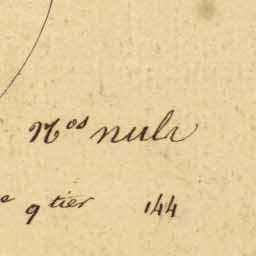 Nos nuls
e 9 tier 144